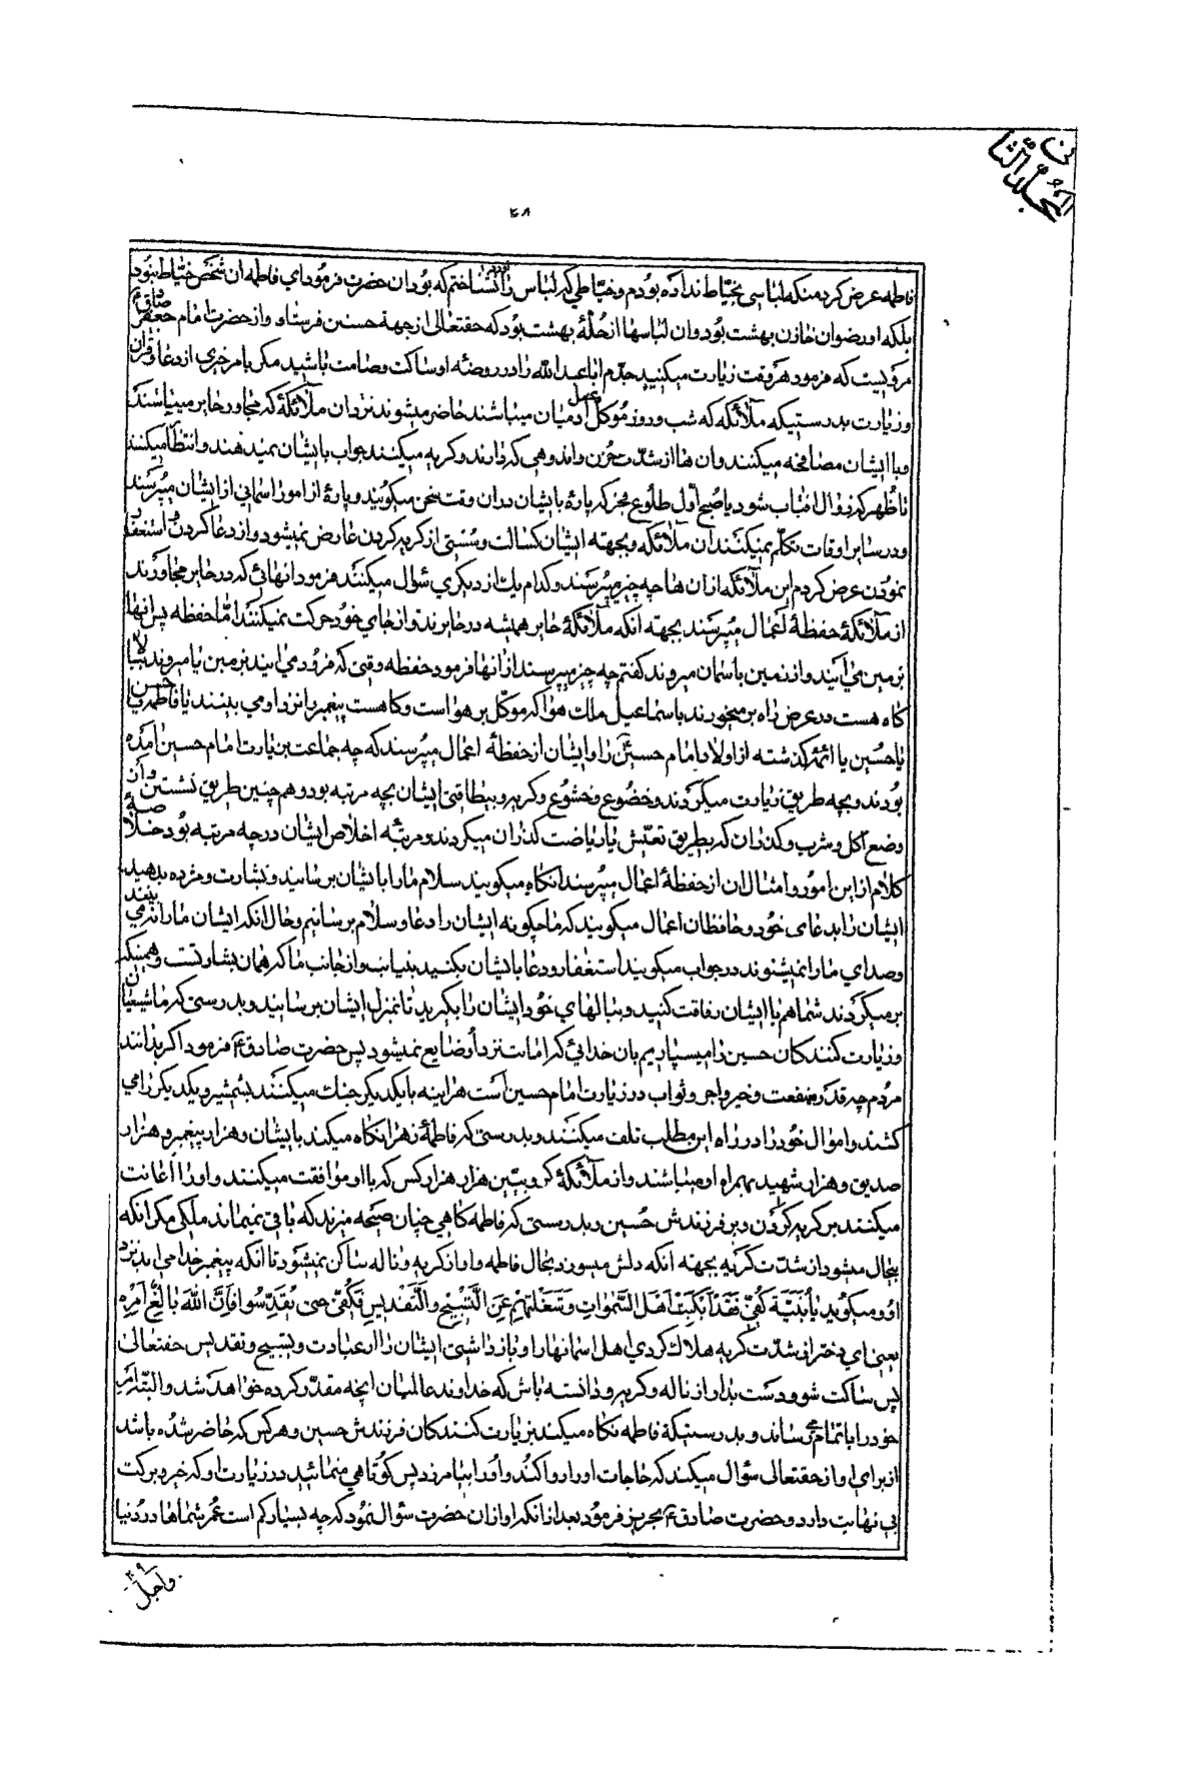 المجلد الثانی
۴۸
فاطمه عرض کرد منکه لباسی بخیّاط نداده بودم و خیّاطی که لباس را اورد نشناختم که بود ان حضرت فرمود ای فاطمه ان شخص خیّاط نبود
بلکه او رضوان خازن بهشت بود و ان لباسها از حُلّهٔ بهشت بود که حقتعالی از جهة حسنین فرستاد و از حضرت امام جعفر صادق ع
مرویست که فرمود هر وقت زیارت میکنید جدّم اباعبدالله را در روضهٔ او ساکت و صامت باشید مکر بامر خیری از دعا و قران
و زیارت بدرستیکه ملائکه که شب و روز موکل عمل ادمیان میباشند حاضر میشوند نزد ان ملائکهٔ که مجاور حایر میباشند
و با ایشان مصافحه میکنند و ان ها از شدّت حزن و اندوهی که دارند و کریه میکنند جواب بایشان نمیدهند و انتظار میکشند
تا ظُهر که زوال افتاب شود یا صبح اوّل طلوع فجر که پارهٔ بایشان دران وقت سخن میکویند و پارهٔ از امور اسمانی از ایشان میپرسند
و در سایر اوقات تکلّم نمیکنند ان ملائکه و بجهته ایشان کسالت و سُستی از کریه کردن عارض نمیشود و از دعا کردن و استغفار
نمودن عرض کردم این ملائکه از ان ها چه چیز میپرسند و کدام یك از دیکری سؤال میکنند فرمود انهائی که در حایر مجاورند
از ملائکهٔ حفظهٔ اعمال میپرسند بجهته انکه ملائکهٔ حایر همیشه در حایرند و از جای خود حرکت نمیکنند امّا حفظه پس انها
بزمین می ایند و از زمین باسمان میروند کفتم چه چیز میپرسند از انها فرمود حفظه وقتی که فرود می ایند بزمین یا میروند ببالا
کاه هست در عرض راه بر میخورند باسماعیل ملك هوا که موکّل بر هوا است و کاهست پیغمبر را نزد او می بینند یا فاطمه یا حسن
یا حُسین یا ائمّهٔ کذشته از اولاد امام حسین را و ایشان از حفظهٔ اعمال میپرسند که چه جماعت بزیارت امام حسین امده
بودند و بچه طریق زیارت میکردند و خضوع و خشوع و کریه و بیطاقتی ایشان بچه مرتبه بود و هم چنین طریق نشستن و ان
وضع اکل و شرب و کذران که بطریق تعیّش یا ریاضت کذران میکردند و مرتبهٔ اخلاص ایشان در چه مرتبه بود خلاصهٔ
کلام از این امور و امثال ان از حفظهٔ اعمال میپرسند انکاه میکویند سلام ما را بایشان برسانید و بشارت و مژده بدهید
ایشان را بدعای خود و حافظان اعمال میکویند که ما چکونه ایشان را دعا و سلام برسانیم و حال انکه ایشان ما را نمی بینند
و صدای ما را نمیشنوند در جواب میکویند استغفار و دعا بایشان بکنید بنیابت و از جانب ما که همان بشارتست و همینکه
بر میکردند شما هم با ایشان رفاقت کنید و ببالهای خود ایشان را بکیرید تا بمنزل ایشان برسانید و بدرستی که ما شیعیان
و زیارت کنندکان حسین را میسپاریم بان خدائی که امانت نزد او ضایع نمیشود پس حضرت صادق ع فرمود اکر بدانند
مردم چه قدر منفعت و خیر و اجر و ثواب در زیارت امام حسین است هراینه با یکدیکر جنك میکنند بشمشیر و یکدیکر را می
کشند و اموال خود را در راه این مطلب تلف میکنند و بدرستی که فاطمهٔ زهرا نکاه میکند بایشان و هزار پیغمبر و هزار
صدیق و هزار شهید بهمراه او میباشند و از ملائکهٔ کروبیّین هزار هزار کس که با او موافقت میکنند و او را اعانت
میکنند بر کریه کردن و بر فرزندش حُسین و بدرستی که فاطمه کاهی چنان صیحه میزند که باقی نمیماند ملکی مکر انکه
بیحال میشود از شدّت کریه بجهته انکه دلش میسوزد بحال فاطمه و او از کریه و ناله ساکن نمیشود تا انکه پیغمبر خدا می اید نزد
او و میکوید یا بُنَیَّة کُفّی فَقَدْ اَبکَیتِ اَهْلَ السَّمٰوٰاتِ وَ شَغَلْتِهِم عَنِ التَّسْبیحِ وَ التَّقْدیسِ فَکُفّی حتی یُقَدِّسُوا فَاِنَّ اللهَ بالِغُ اَمْرِه
یعنی ای دختر از شدّت کریه هلاك کردی اهل اسمانها را و باز داشتی ایشان را از عبادت و تسبیح و تقدیس حقتعالی
پس ساکت شو و دست بدار از ناله و کریه و دانسته باش که خداوند عالمیان انچه مقدّر کرده خواهد شد و البتّه امر
خود را باتمام می رساند و بدرستیکه فاطمه نکاه میکند بزیارت کنندکان فرزندش حسین و هر کس که حاضر شده باشد
از برای او از حقتعالی سؤال میکند که حاجات او را روا کند و او را بیامرزد پس کوتاهی منمائید در زیارت او که خیر و برکت
بی نهایت دارد و حضرت صادق ع بجریز فرمود بعد از انکه او از ان حضرت سؤال نمود که چه بسیار کم است عمر شماها در دنیا
و اجل